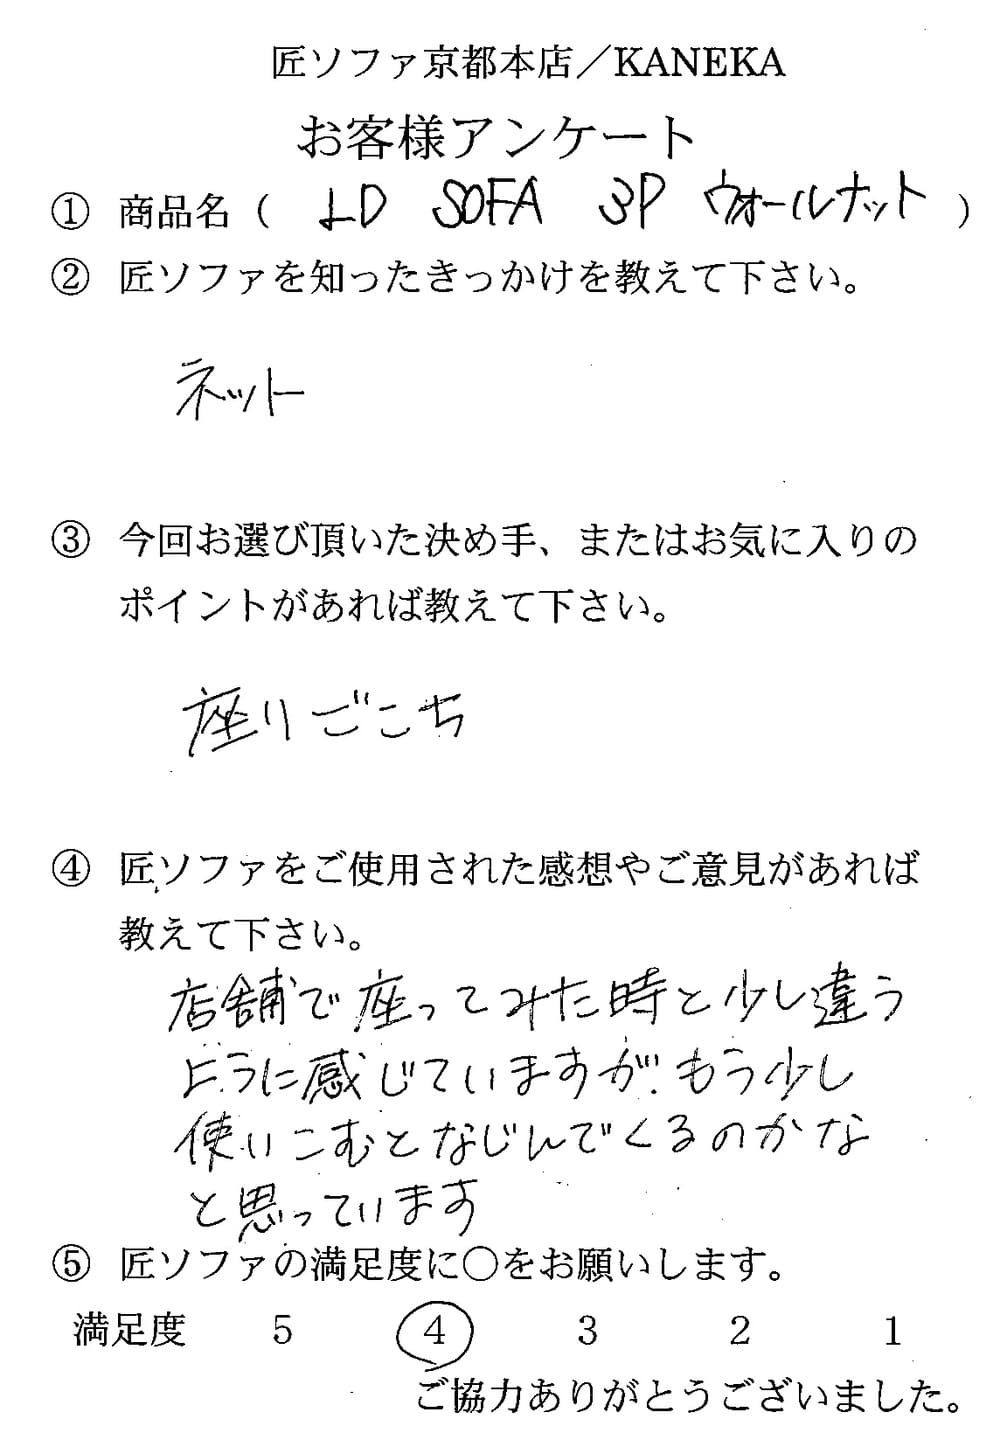 匠ソファ京都本店／KANEKA
お客様アンケート
① 商品名（ LD SOFA 3P ウォールナット ）
② 匠ソファを知ったきっかけを教えて下さい。
ネット
③ 今回お選び頂いた決め手、またはお気に入りの
ポイントがあれば教えて下さい。
座りごこち
④ 匠ソファをご使用された感想やご意見があれば
教えて下さい。
店舗で座ってみた時と少し違う
ように感じていますが、もう少し
使いこむとなじんでくるのかな
と思っています
⑤ 匠ソファの満足度に〇をお願いします。
満足度 5 4 3 2 1
ご協力ありがとうございました。